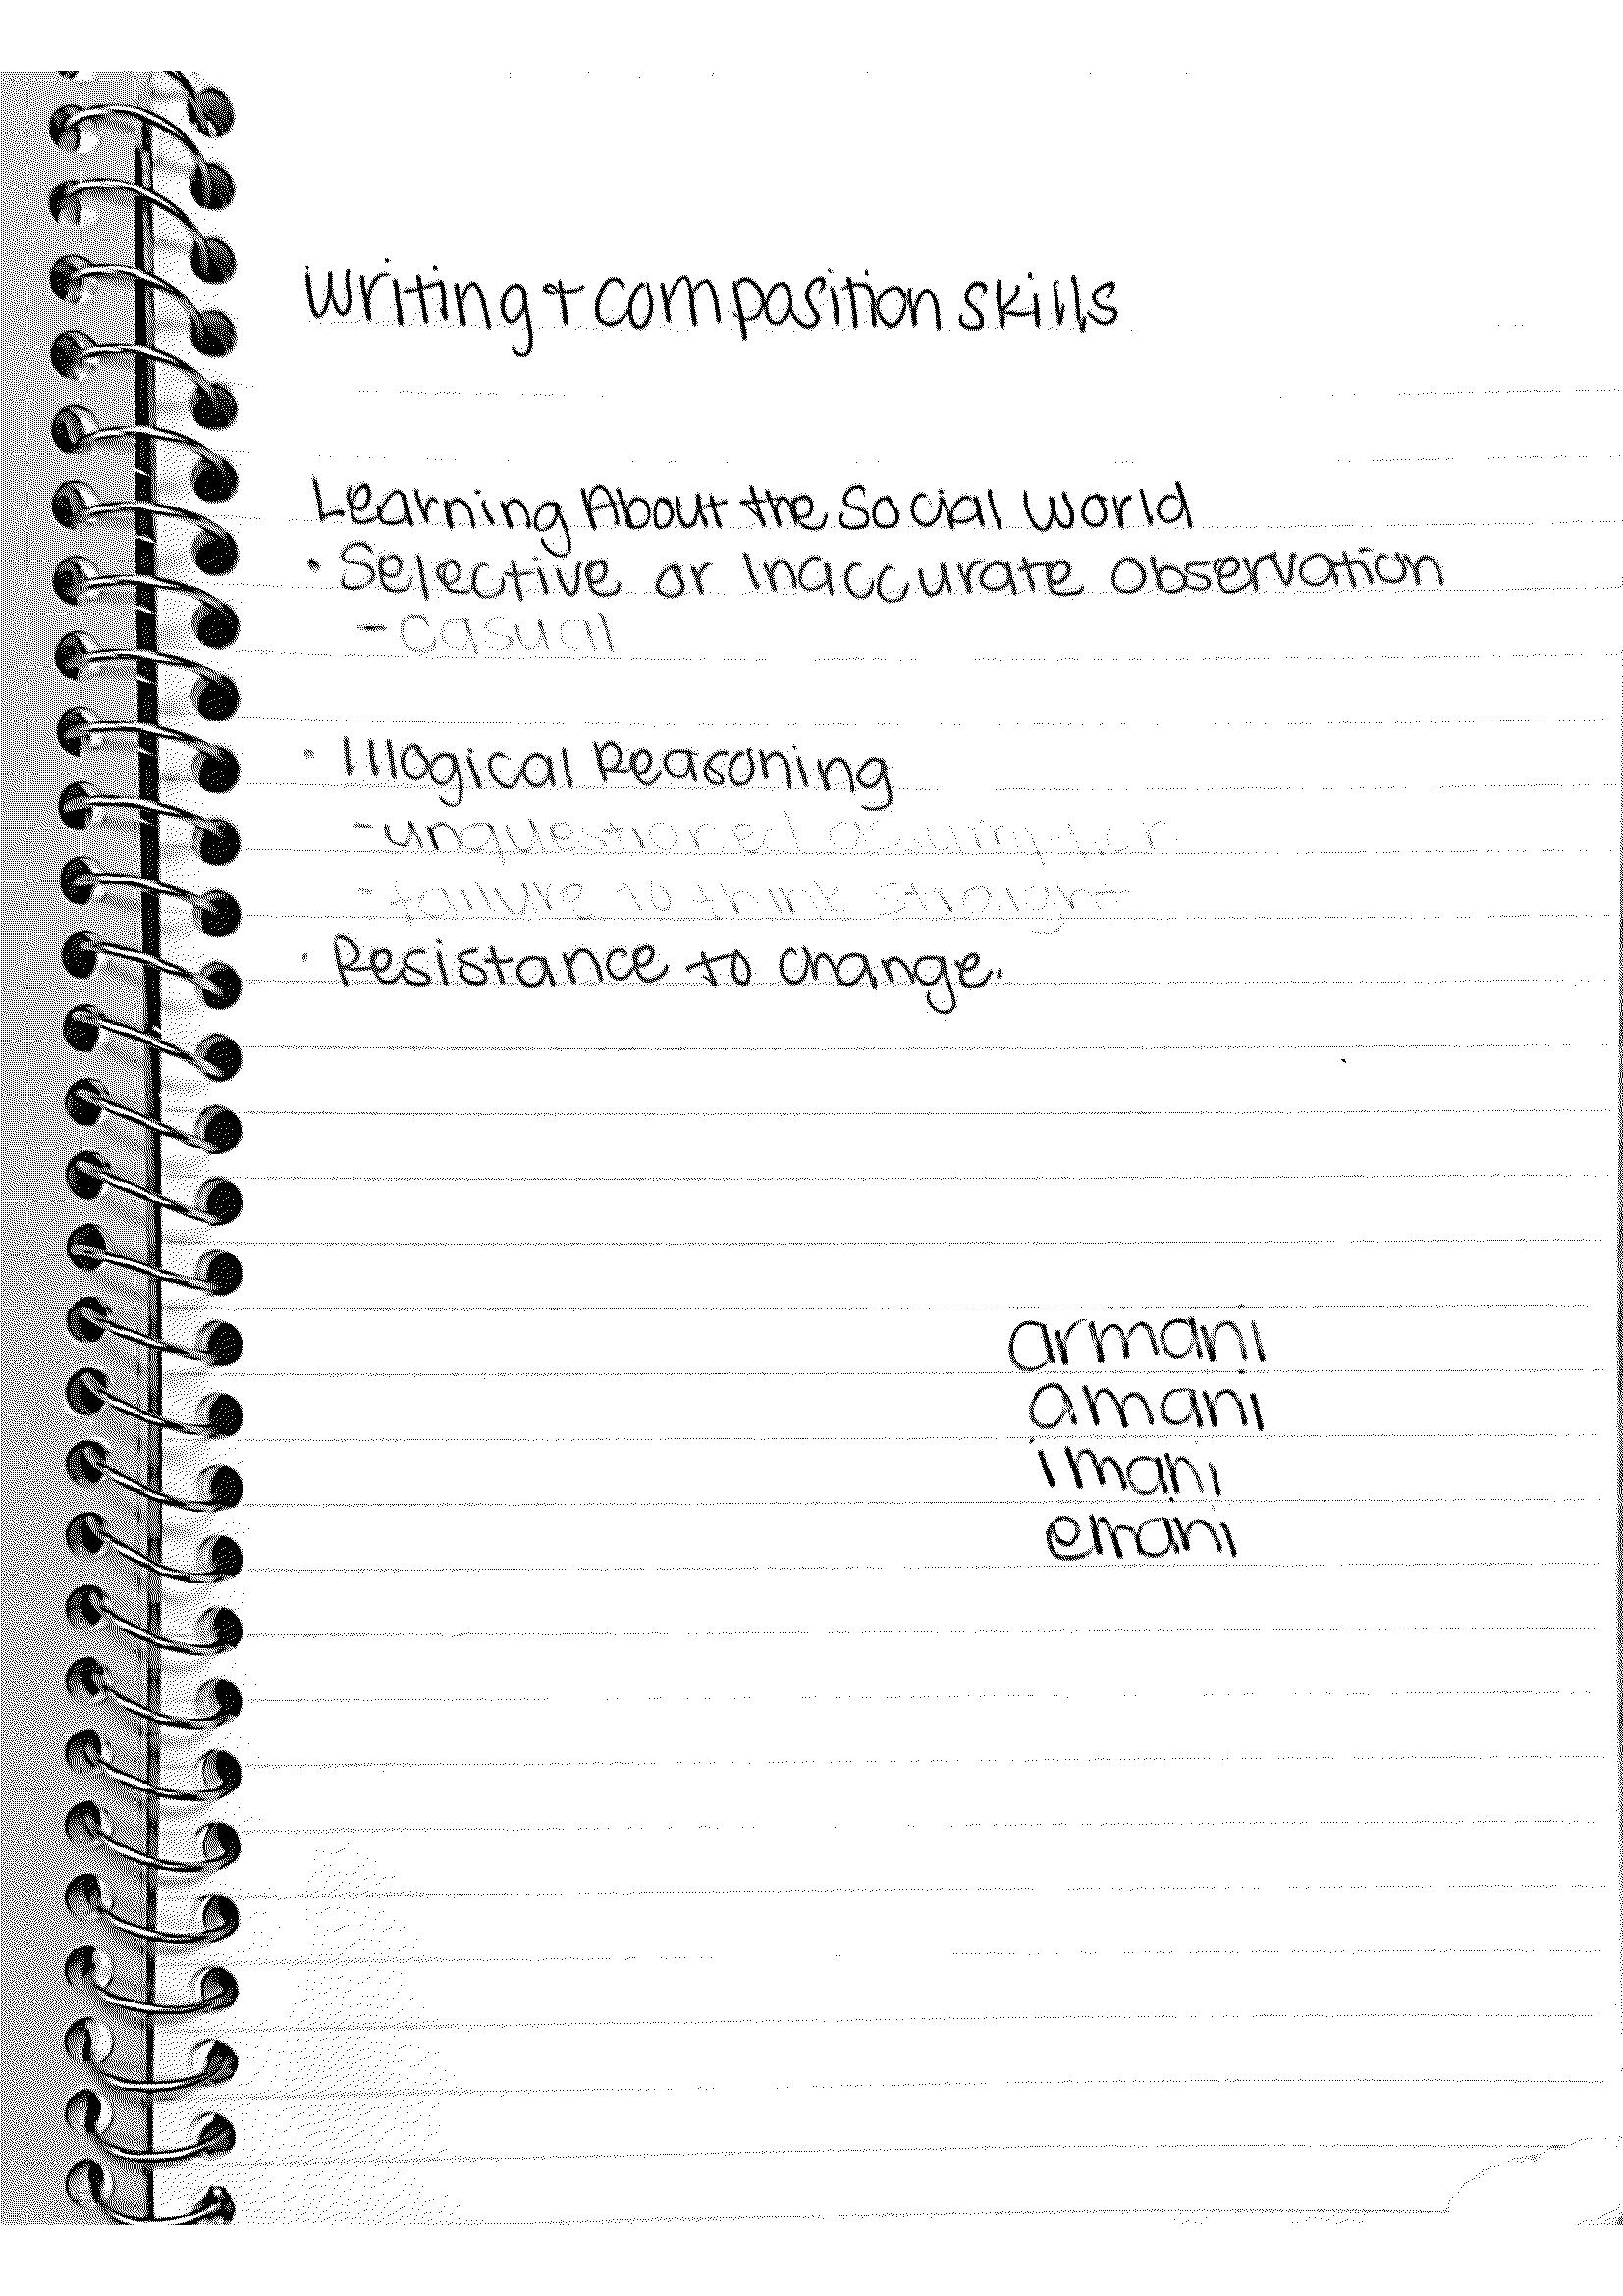 Writing + composition skills
Learning About the Social World
• Selective or Inaccurate Observation
- casual
• Illogical Reasoning
- unquestioned assumption
- failure to think straight
• Resistance to change.
armani
amani
imani
emani